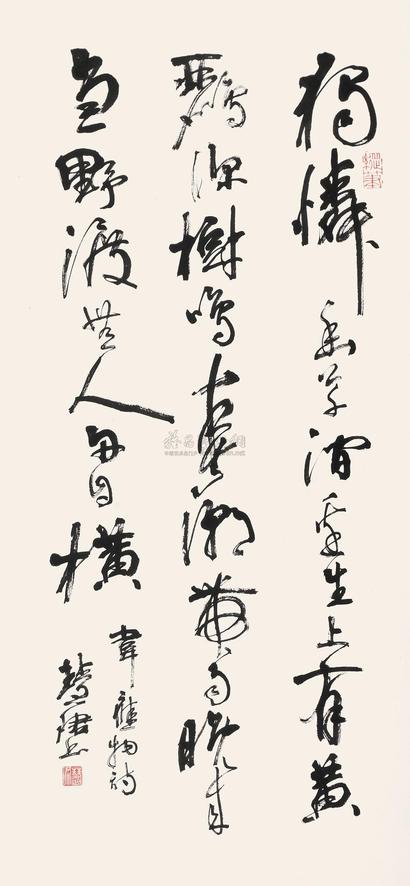 獨憐幽草澗邊生上有黃
鸝深樹鳴春潮帶雨晚來
急野渡無人舟自橫
韋應物詩
慧珺書